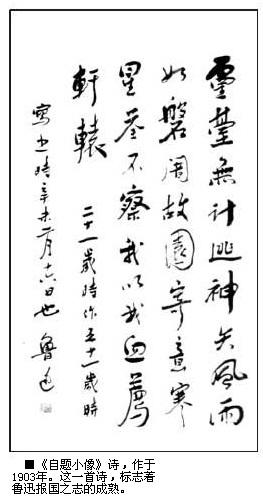 靈臺無計逃神矢風雨
如磐闇故園寄意寒
星荃不察我以我血薦
軒轅 二十一歲時作五十一歲時
寫之時辛未二月十六日也 魯迅
■《自题小像》诗，作于
1903年。这一首诗，标志着
鲁迅报国之志的成熟。